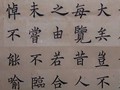 大矣豈不
每覽昔人
之由若合
未嘗不臨
悼不能喻